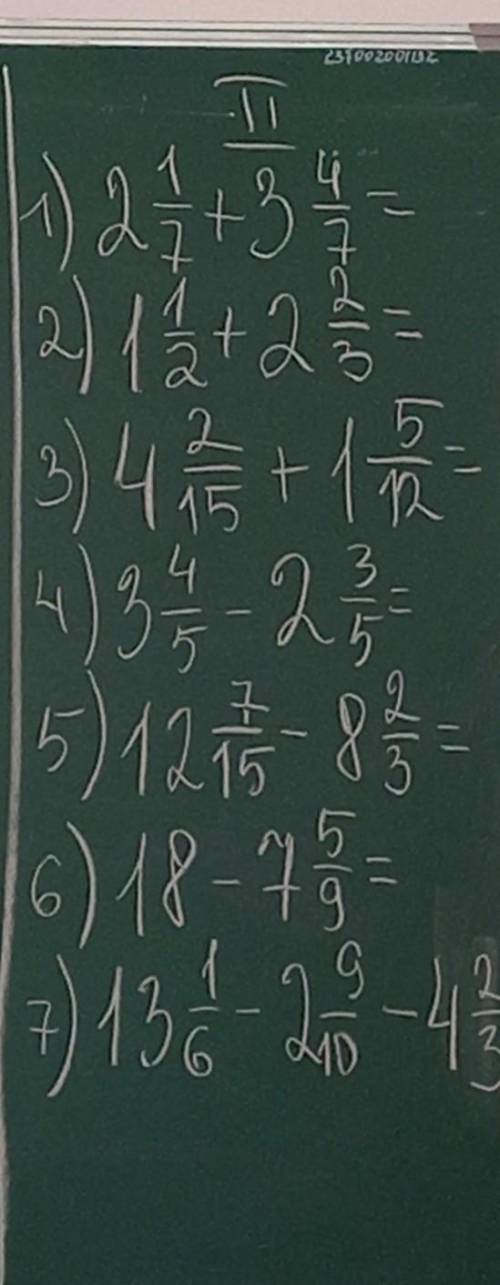 II
1) 2 1/7 + 3 4/7 =
2) 1 1/2 + 2 2/3 =
3) 4 2/15 + 1 5/12 =
4) 3 4/5 - 2 3/5 =
5) 12 7/15 - 8 2/3 =
6) 18 - 7 5/9 =
7) 13 1/6 - 2 9/10 - 4 2/3